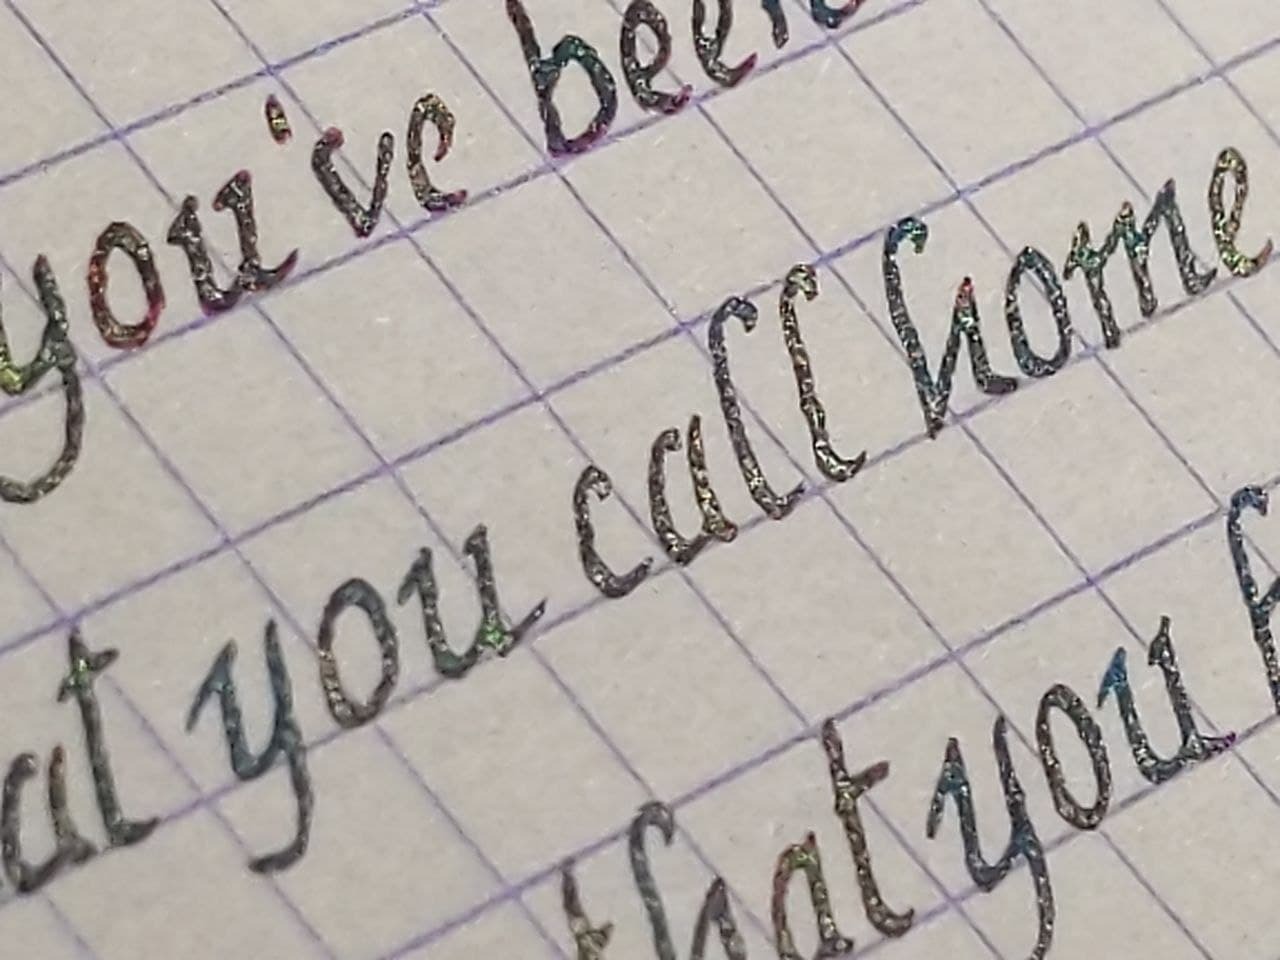 you've been
at you call home
that you